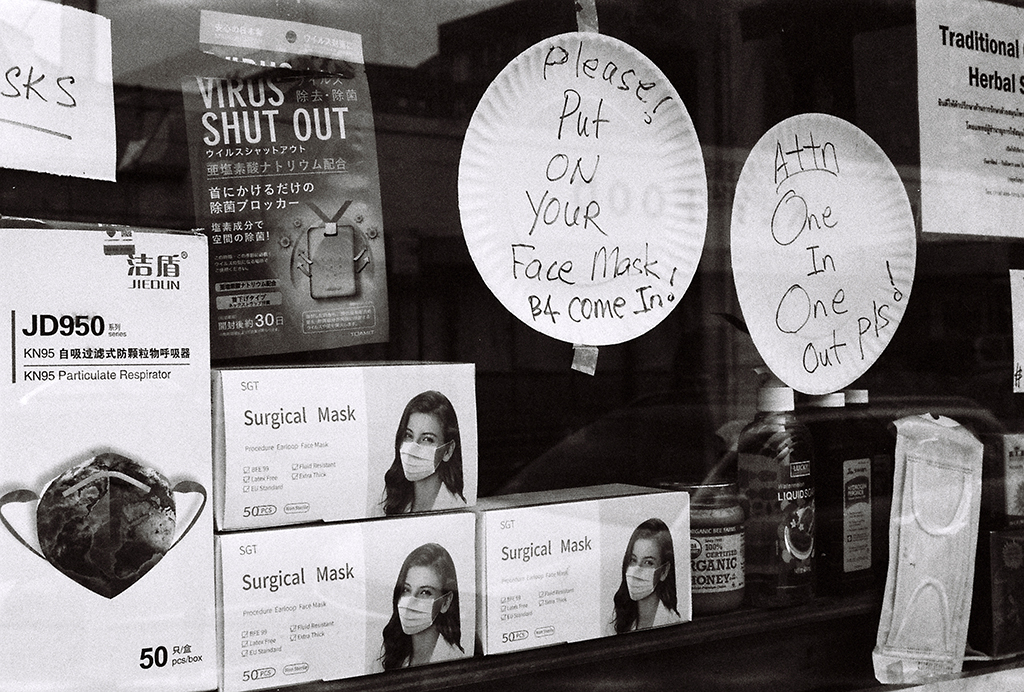 SKS
安心の日本製
ウイルス除去
VIRUS
ウイルス
除去・除菌
SHUT OUT
ウイルスシャットアウト
亜塩素酸ナトリウム配合
首にかけるだけの
除菌ブロッカー
塩素成分で
空間の除菌!
亜塩素酸ナトリウム配合
首下げタイプ
開封後約30日
TOAMIT
Please!!
Put
ON
YOUR
Face Mask
B4 Come In!
Attn
One
In
One
Out Pls!
Traditional
Herbal S
洁盾®
JIEDUN
JD950 系列
series
KN95 自吸过滤式防颗粒物呼吸器
KN95 Particulate Respirator
50 只/盒
pcs/box
SGT
Surgical Mask
Procedure Earloop Face Mask
BFE 99
Fluid Resistant
Latex Free
Extra Thick
EU Standard
50 PCS
Non Sterile
SGT
Surgical Mask
Procedure Earloop Face Mask
BFE 99
Fluid Resistant
Latex Free
Extra Thick
EU Standard
50 PCS
Non Sterile
SGT
Surgical Mask
Procedure Earloop Face Mask
BFE 99
Fluid Resistant
Latex Free
Extra Thick
EU Standard
50 PCS
Non Sterile
100%
CERTIFIED
ORGANIC
HONEY
LUCKY
LIQUID SO
HYDROGEN
PEROXIDE